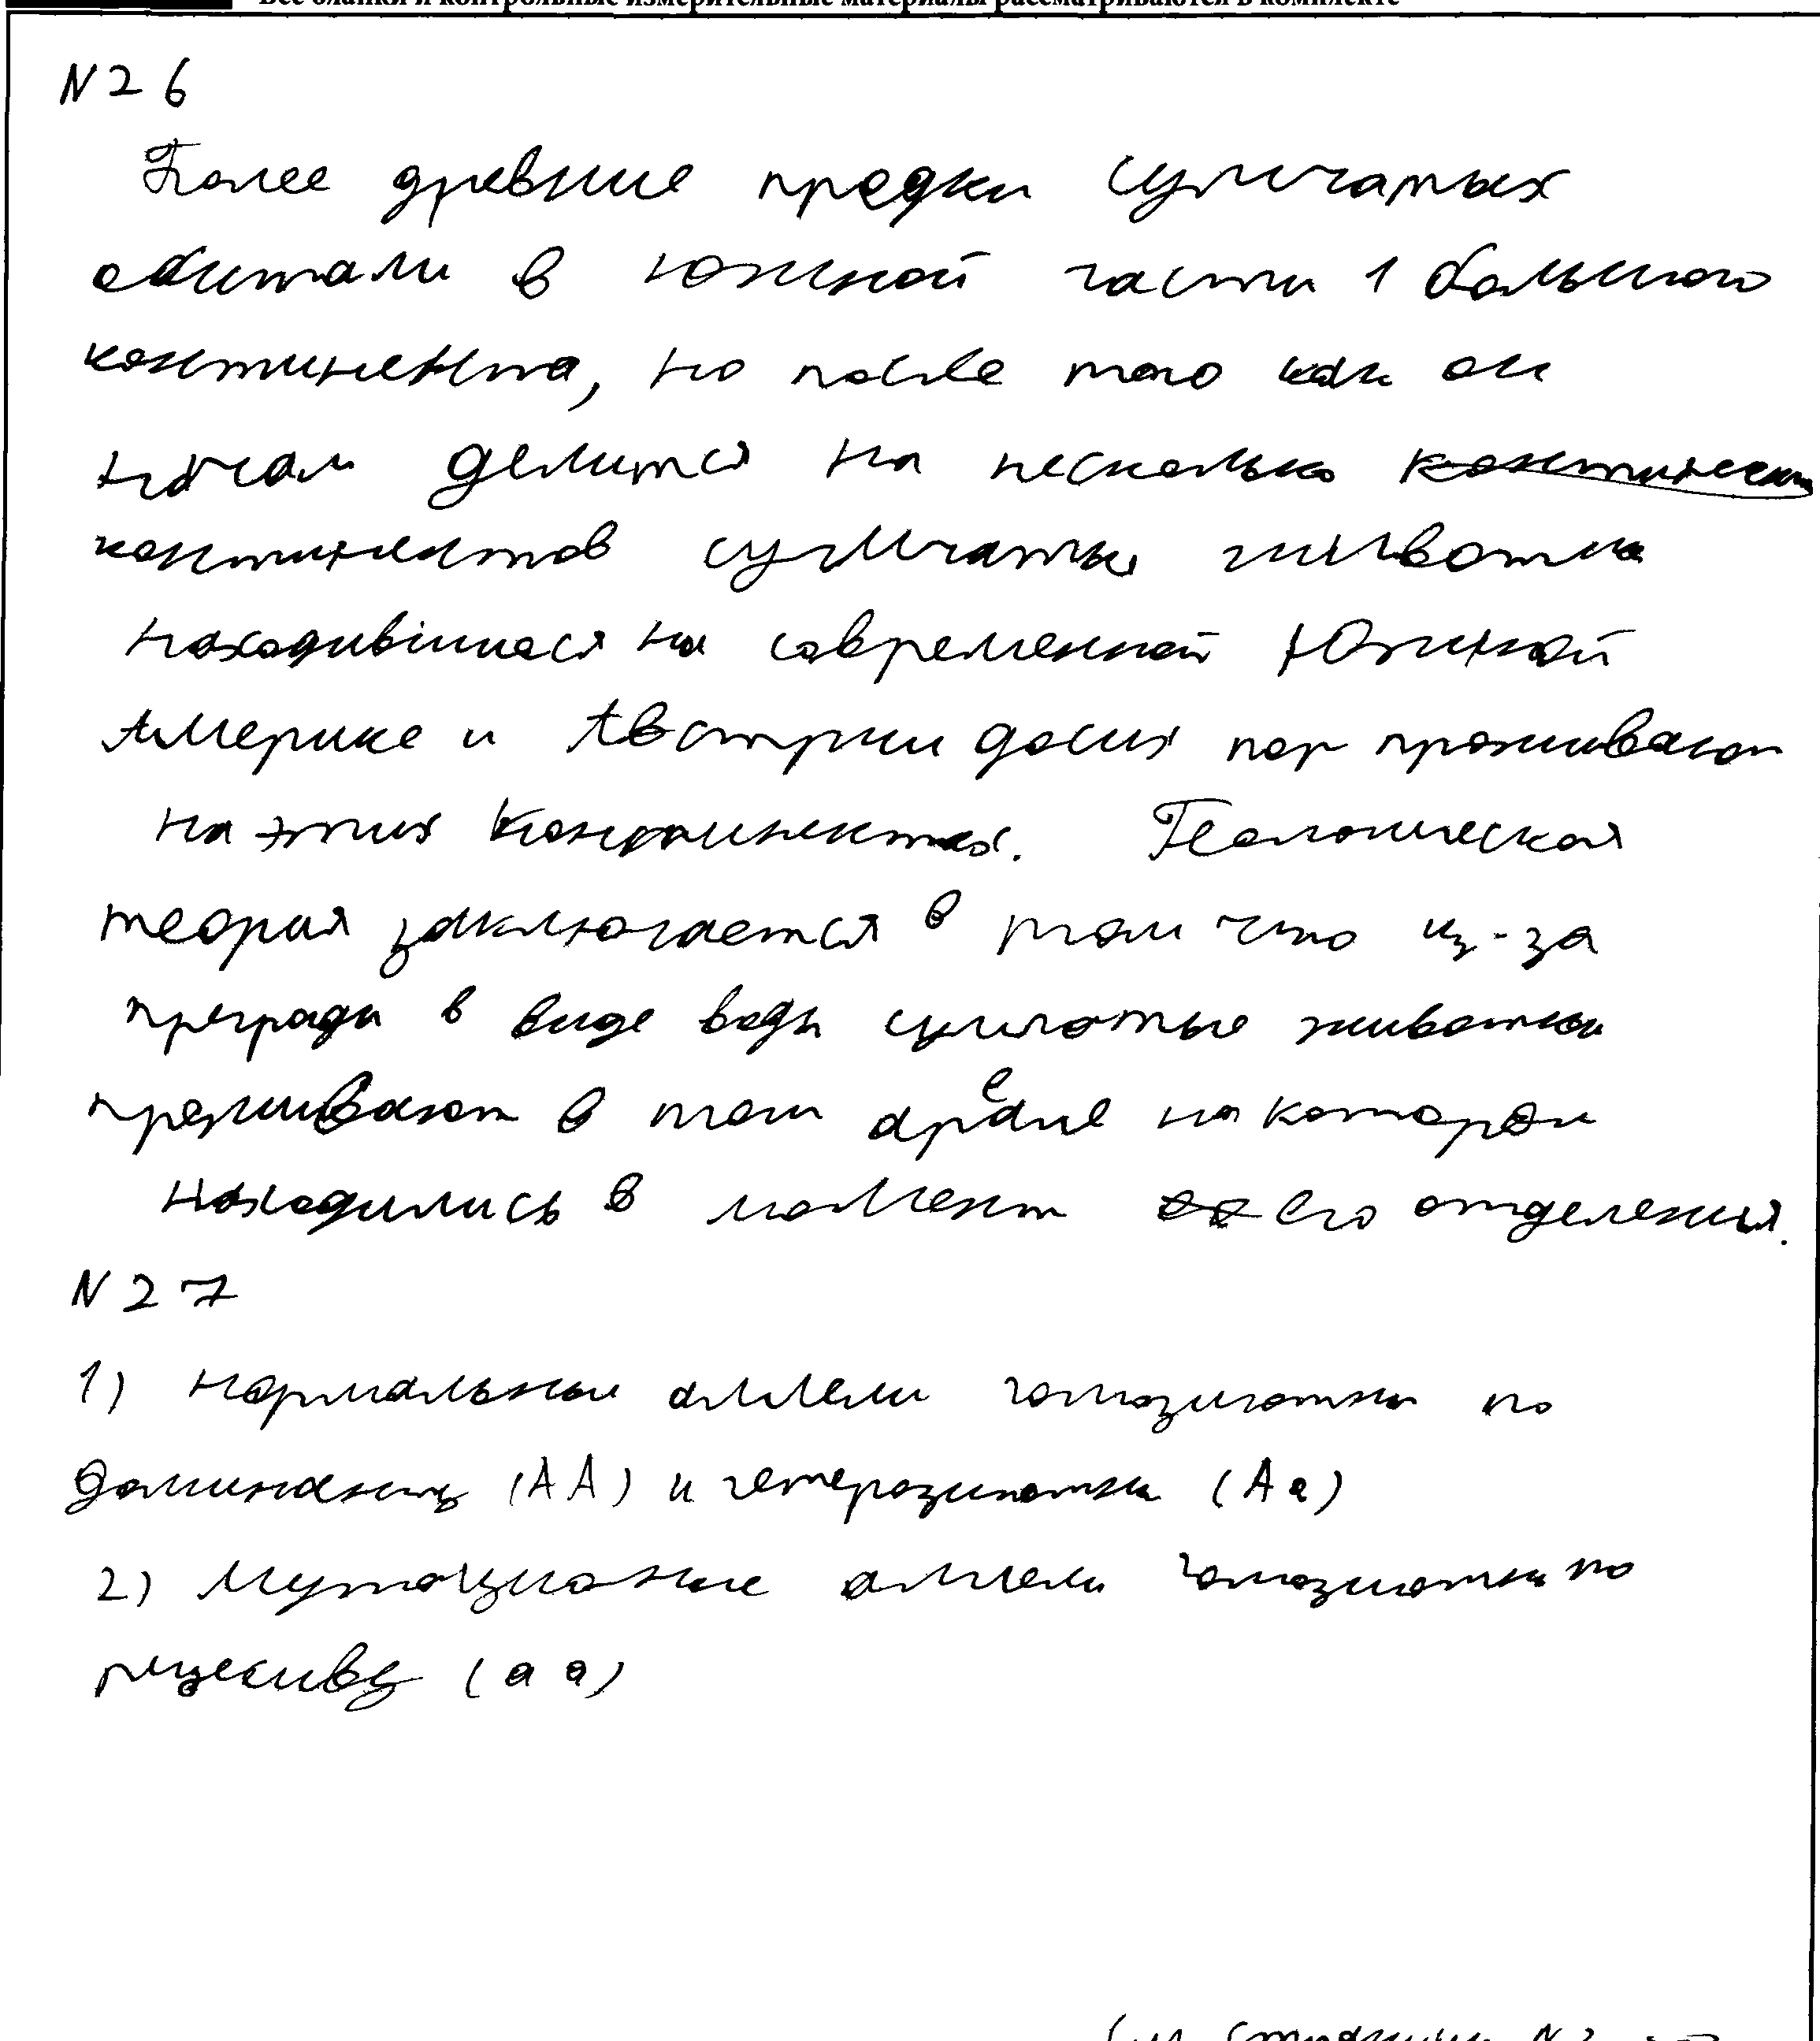 Все бланки и контрольные измерительные материалы рассматриваются в комплекте
N 26
Более древние предки сумчатых
обитали в южной части 1 большого
континента, но после того как он
начал делится на несколько
континентов сумчатые животные
находившиеся на современной Южной
Америке и Австрии до сих пор проживают
на этих континентах. Геологическая
теория заключается в том что из-за
преграды в виде воды сумчатые животные
проживают в том ареале на котором
находились в момент его отделения.
N 27
1) Нормальные аллели гомозиготны по
доминанту (АА) и гетерозиготны (Аа)
2) Мутационные аллели гомозиготны по
рецесиву (аа)